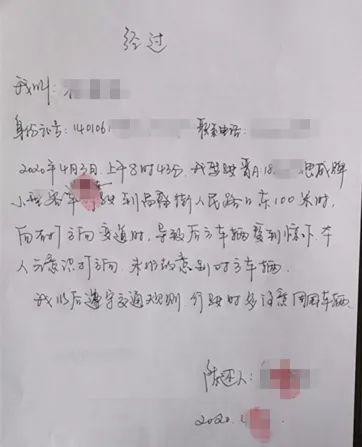 经过
我叫：
身份证号：140106 联系电话：
2020年4月3日上午8时43分，我驾驶晋A18 思威牌
小型客车 驶到 街人民路口东100米时，
向右打方向变道时，导致后方车辆受到惊吓，本
人无意识打方向，未形成恶意别对方车辆。
我以后遵守交通规则 行驶时多注意周围车辆。
陈述人：
2020.4